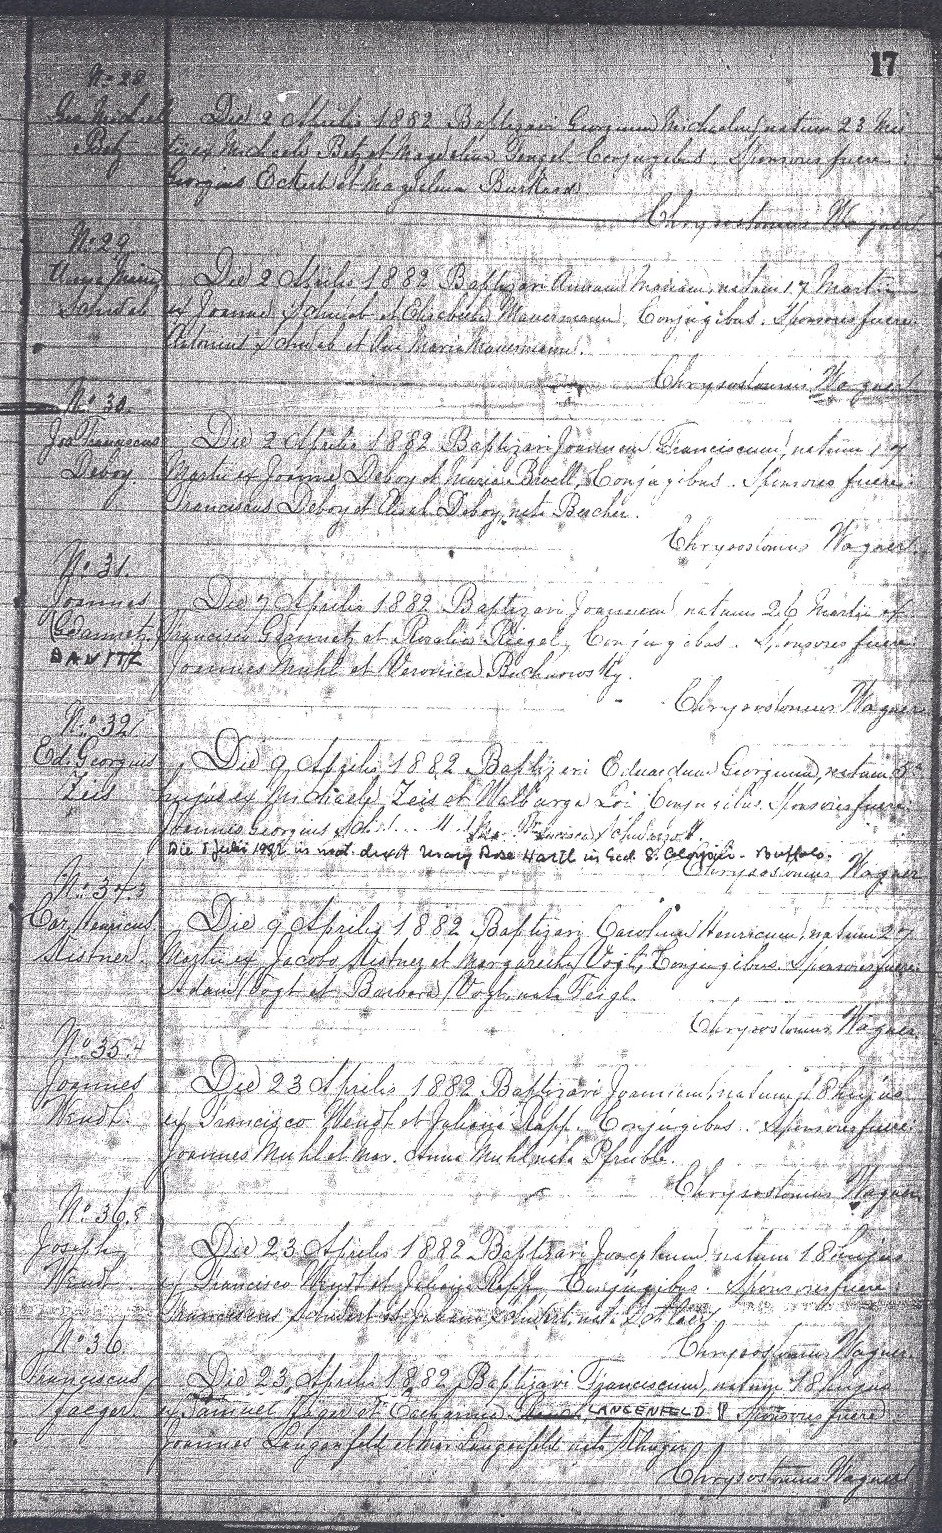 17
No. 28
Geo Michael
Betz
Die 2 Aprilis 1882 Baptizavi Georgium Michaelem, natum 23 Mar
tii ex Michaele Betz et Magdalena Conjugibus. Sponsores fuere:
Georgius Eckert et Magdalena Burkard
Chrysostomus Wagner
No. 29
Anna Maria
Schwab
Die 2 Aprilis 1882 Baptizavi Annam Mariam, natam 17 Martii
ex Joanne Schwab et Elisabetha Mauermann, Conjugibus. Sponsores fuere:
Antonius Schwab et Maria Mauermann.
Chrysostomus Wagner
No. 30.
Jos Franciscus
Deboy.
Die 2 Aprilis 1882 Baptizavi Joannem Franciscum, natum 17
Martii ex Joanne Deboy et Maria Broell, Conjugibus. Sponsores fuere:
Franciscus Deboy et Deboy, nata Becher.
Chrysostomus Wagner.
No. 31.
Joannes
Gdannetz.
DANITZ
Die 7 Aprilis 1882 Baptizavi Joannem natum 26 Martii ex
Francisco Gdannetz et Rosalia Riegel, Conjugibus. Sponsores fuere:
Joannes Muhl et Veronica Buchnowsky.
Chrysostomus Wagner
No. 32
Ed. Georgius
Zeis
Die 9 Aprilis 1882 Baptizavi Eduardum Georgium, natum 5
hujus ex Michaele Zeis et Walburga Loi Conjugibus. Sponsores fuere:
Joannes Georgius
Die in mat. duxit Mary Rose Hartl in Eccl. S. Aloysii - Buffalo.
Chrysostomus Wagner
No. 34.3
Car. Henricus
Kistner.
Die 9 Aprilis 1882 Baptizavi Carolum Henricum, natum 27
Martii ex Jacobo Kistner et Margaretha Vogt, Conjugibus. Sponsores fuere:
Adam Vogt et Barbara Vogt, nata Feigl.
Chrysostomus Wagner.
No. 35.4
Joannes
Wendt.
Die 23 Aprilis 1882 Baptizavi Joannem, natum 18 hujus
ex Francisco Wendt et Juliana Rapp. Conjugibus. Sponsores fuere:
Joannes Muhl et Mar. Anna Muhl, nata Pfruble.
Chrysostomus Wagner
No. 36.5
Joseph
Wendt
Die 23 Aprilis 1882 Baptizavi Josephum natum 18 hujus
ex Francisco Wendt et Juliana Rapp, Conjugibus. Sponsores fuere:
Franciscus Schubert et Juliana Schubert, nata
Chrysostomus Wagner.
No. 36.
Franciscus
Jaeger.
Die 23 Aprilis 1882 Baptizavi Franciscum, natum 18 hujus
ex Samuel Jager et Catharina LANGENFELD Sponsores fuere
Joannes Langenfeld et Mar Langenfeld nata
Chrysostomus Wagner